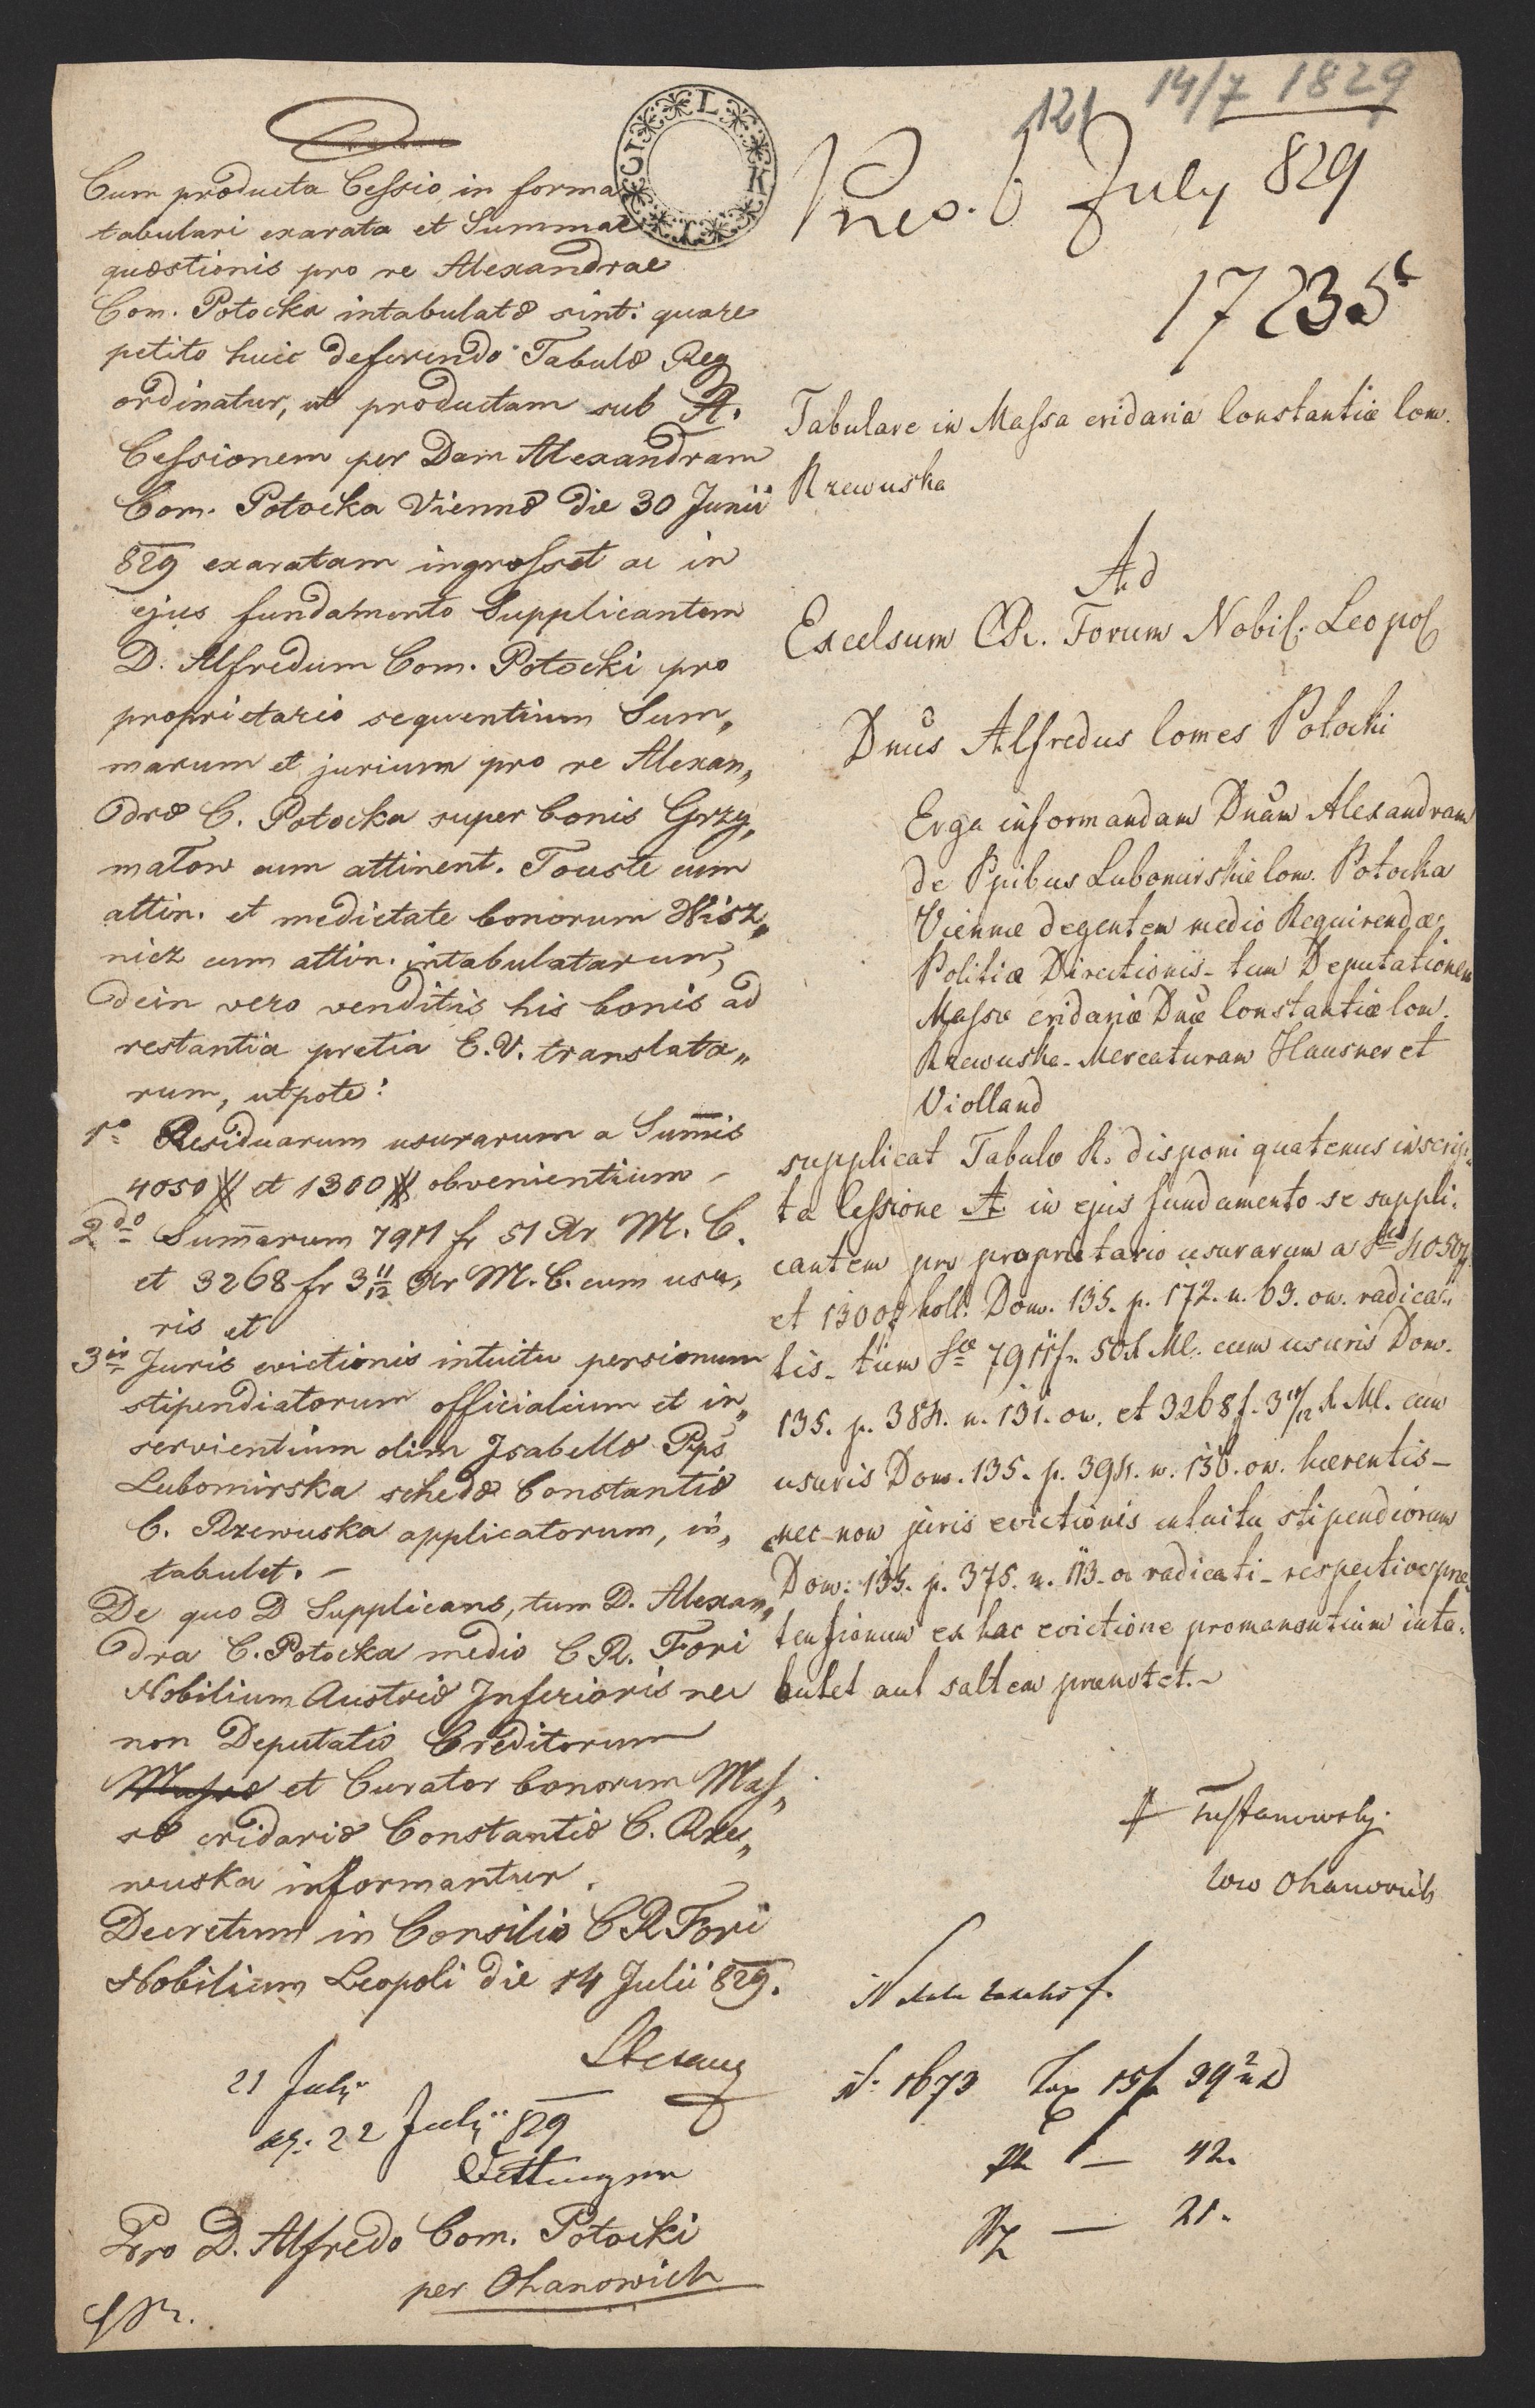 121 14/7 1829
Cum producta Cessio in forma
tabulari exarata et Summae
quæstionis pro re Alexandrae
Com. Potocka intabulatæ sint: quare
petito huic deferendo Tabulæ Reg
ordinatur, ut productam sub A.
Cessionem per Dam Alexandram
Com. Potocka Viennæ die 30 Junii
829 exaratam ingrosset ac in
ejus fundamento Supplicantem
D. Alfredum Com. Potocki pro
proprietario sequentium Sum„
marum et jurium pro re Alexan„
dræ C. Potocka super bonis Grzy„
małow cum attinent. Touste cum
attin. et medietate bonorum Wisz„
nicz cum attin. intabulatarum,
dein vero venditis his bonis ad
restantia pretia E.V. translata„
rum, utpote:
1o Residuarum usurarum a Summis
4050 # et 1300 # obvenientium –
2do Summarum 7911 fr 51 Xr M. C.
et 3268 fr 3 11/12 Xr M. C. cum usu„
ris et
3io Juris evictionis intuitu pensionum
stipendiatorum officialium et in„
servientium olim Isabellæ Pps
Lubomirska schedæ Constantiæ
C. Rzewuska applicatorum, in„
tabulet. –
De quo D Supplicans, tum D. Alexan„
dra C. Potocka medio C R. Fori
Nobilium Austriæ Inferioris nec
non Deputatio Creditorum
Massæ et Curator bonorum Mas„
sæ cridariæ Constantiæ C. Rze„
wuska informantur.
Decretum in Consilio C R Fori
Nobilium Leopoli die 14 Julii 829.
21 July
22 July 829
Pro D. Alfredo Com. Potocki
per Ohanowich
L K
Pres. 6 July 829
17235
Tabulare in Massa cridaria Constantiæ Com.
Rzewuska
Ad
Excelsum CR. Forum Nobil: Leopol
Dnus Alfredus Comes Potocki
Erga informandam Dnam Alexandram
de Ppibus Lubomirskie Com. Potocka
Viennæ degentem medio Requirendæ
Politiæ Directionis – tum Deputationem
Massæ cridariæ Dnæ Constantiæ Com.
Rzewuska – Mercaturam Hausner et
Violland
supplicat Tabulæ R. disponi quatenus inscrip„
ta Cessione A. in ejus fundamento se suppli„
cantem pro proprietario usurarum a 4050#
et 1300# holl. Dom. 135. p. 172. n. 63. on. radica„
tis – tum 7911 fr. 50 X MC. cum usuris Dom.
135. p. 384. n. 131. on. et 3268 f. 3 11/12 X MC. cum
usuris Dom. 135. p. 394. n. 136. on. hærentis –
nec non juris evictionis intuitu stipendiorum
Dom: 135. p. 375. n. 113. on radicati – respective præ„
tensionum ex hac evictione promanantium inta„
bulet aut saltem prænotet. –
Tustanowsky
Ohanowich
N. 1673 Tax 15 f 39 2/4 X
– 42.
– 21.